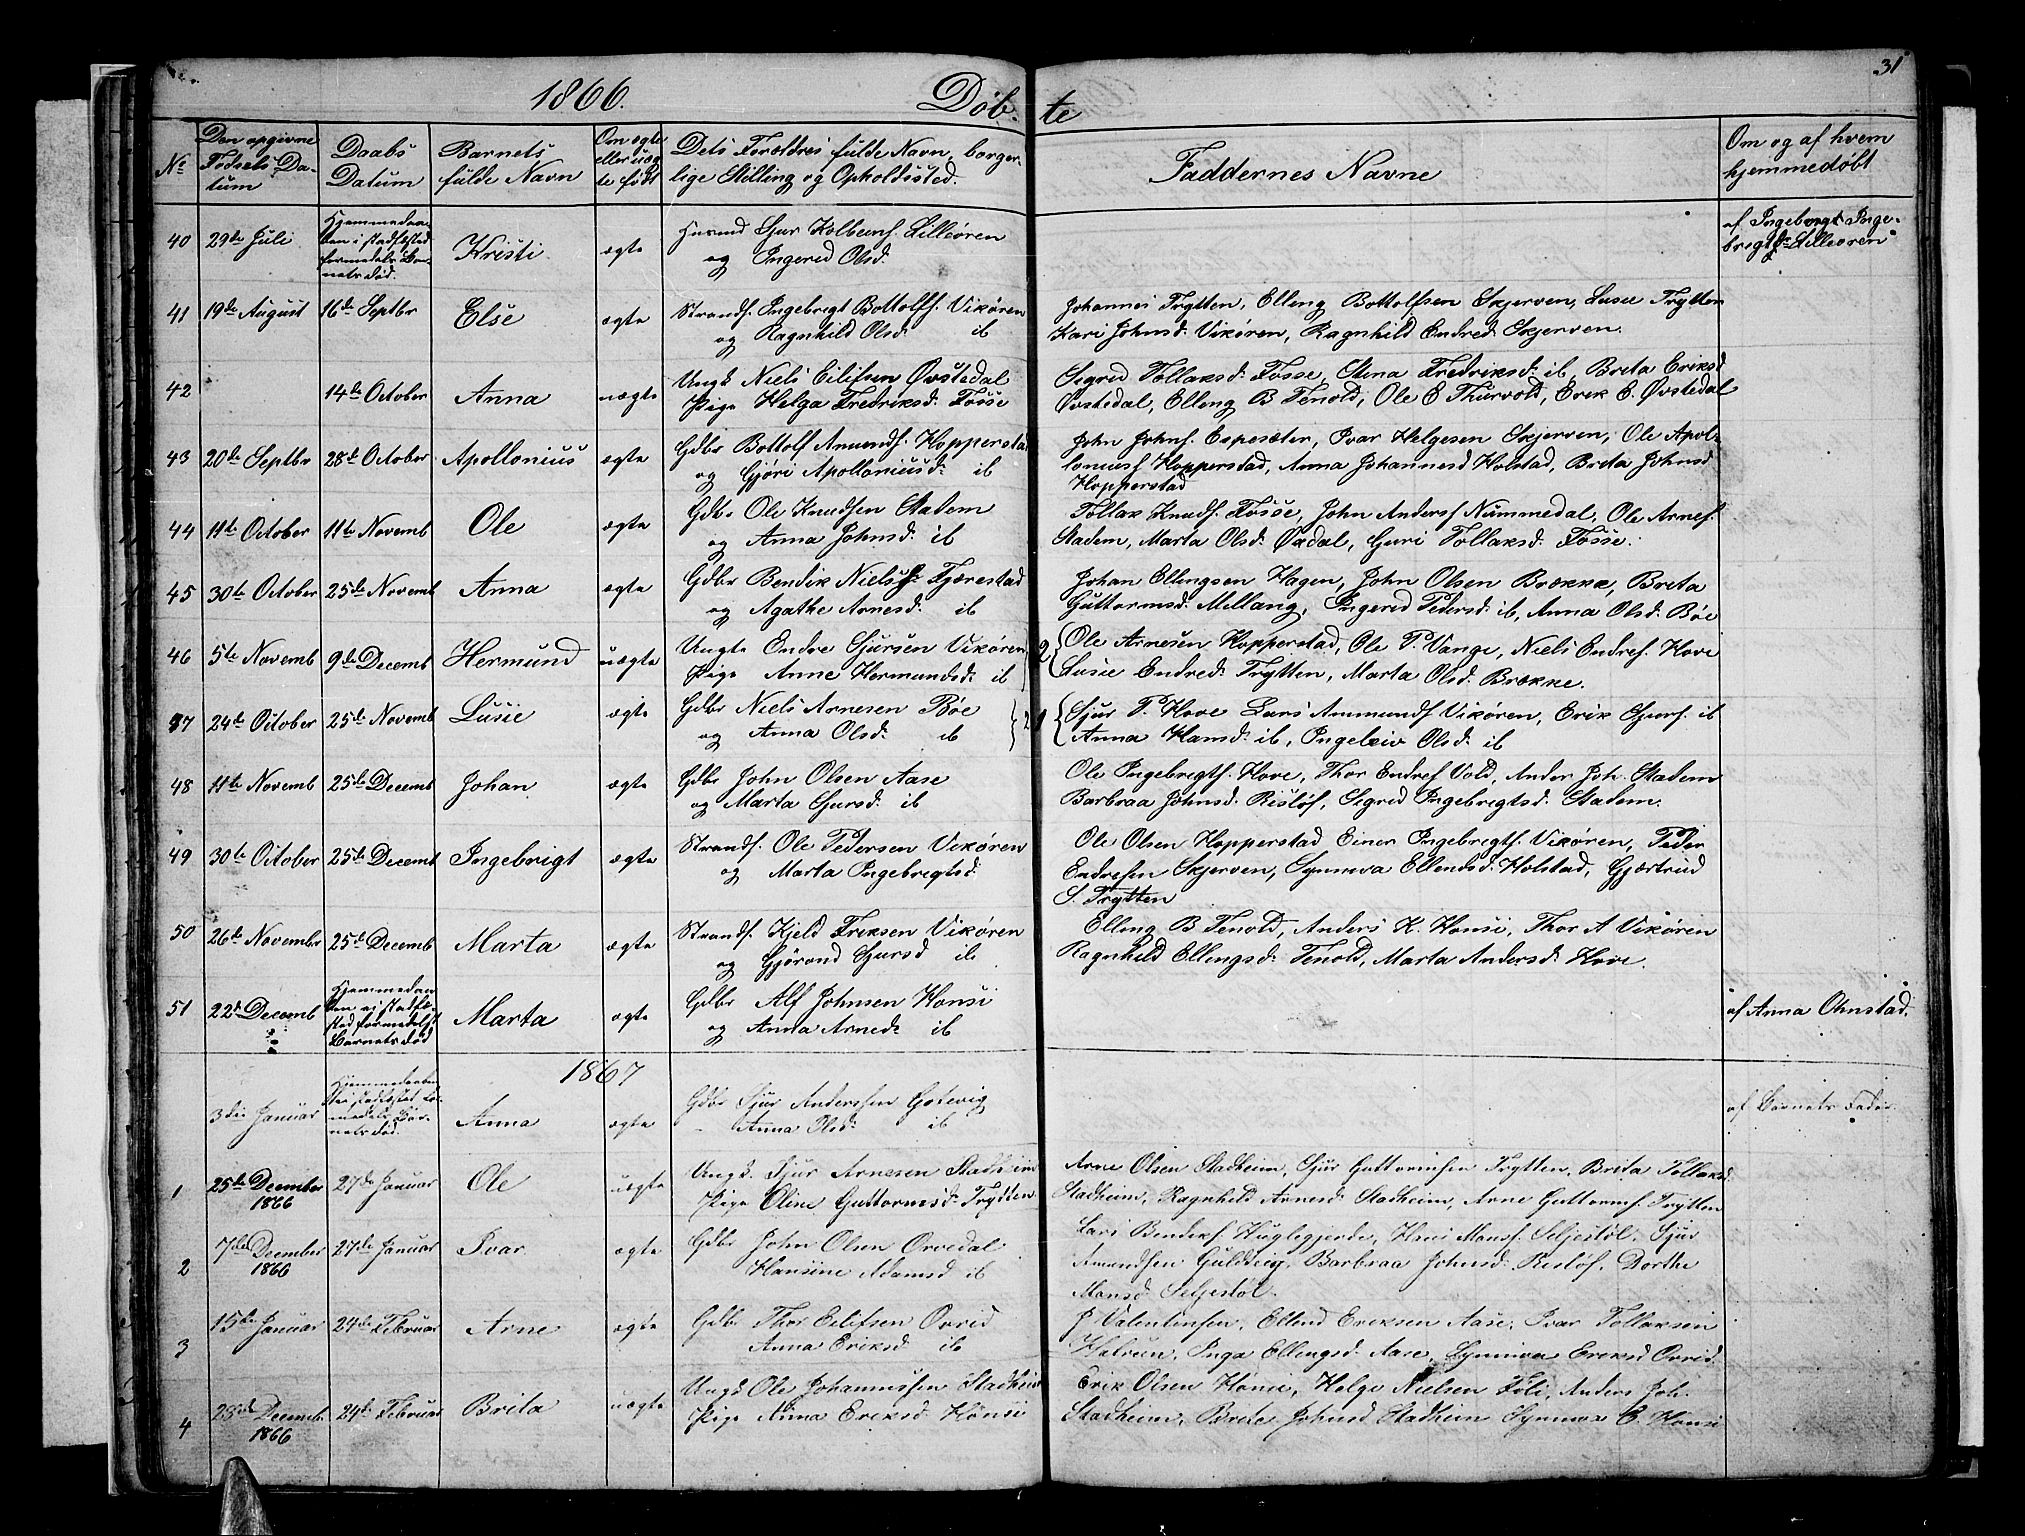 31
1866. Døb- te
No
Den opgivne Fødsels Da-tum
Daabs Datum
Barnets fulde Navn
Om ægte eller uæg te født
Dets Forældres fulde Navn, borger-lige Stilling og Opholdssted.
Faddernes Navne
Om og af hvem hjemmedøbt
40 29de Juli Hjemmedaa-ben i stadfæsted formedels Bar-nets Død. Kristi ægte Husmd Sjur Kolbeins. Lilleøren
og Ingerid Olsd.
af Ingeborg Inge-
brigtsd. Lilleøren
41 19de August 16de Septbr Else ægte Strands. Ingebrigt Bottolfs. Vikøren
og Ragnhild Olsd. ib
Johannes Trytten, Elling Bottolfsen Skjerven, Lusie Trytten
Kari Johnsd. Vikøren, Ragnhild Endred. Skjerven.
42 14de October Anna uægte Ungk. Niels Eilifsen Øvstedal
Pige Helga Fredriksd. Fosse
Sigrid Tollaksd. Fosse, Stina Fredriksd. ib, Brita Eriksd
Øvstedal, Elling B Tenold, Ole E Thurvold, Erik E. Øvstedal
43 20de Septbr 28de October Apollonius ægte Gdbr Bottolf Amunds. Hopperstad
og Gjøri Apolloniusd. ib
John Johns. Espesæter, Ivar Helgesen Skjerven, Ole Apol-
lonius. Hopperstad, Anna Johannesd Holstad, Brita Johnsd
Hopperstad
44 11te October 11te Novemb Ole ægte Gdbr Ole Knudsen Stadem
og Anna Johnsd. ib
Tollak Knuds. Fosse, John Anders. Nummedal, Ole Arnes.
Stadem, Marta Olsd. Ovdal, Guri Tollaksd. Fosse.
45 30te October 25de Novemb Anna ægte Gdbr Bendik Niels. Fjærestad
og Agathe Arnesd. ib
Johan Ellingsen Hagen, John Olsen Brække, Brita
Guttormsd. Mellang, Ingerid Pedersd. ib, Anna Olsd. Bøe
46 5te Novemb 9de Decemb Hermund uægte Ungk Endre Sjursen Vikøren
Pige Anne Hermundsd. ib
2 Ole Arnesen Hopperstad, Ole P. Vange, Niels Endres. Hove
Lusie Endred. Trytten, Marta Olsd. Brække.
47 24de October 25de Novemb Lusie ægte Gdbr Niels Arnesen Bøe
og Anna Olsd. ib
1 Sjur P. Hove Lars Ammunds Vikøren, Erik Sjurs. ib
Anna Hansd. ib, Ingeleiv Olsd. ib
48 11te Novemb 25de Decemb Johan ægte Gdbr John Olsen Aase
og Marta Sjursd. ib
Ole Ingebrigts. Hove, Thor Endres Vold, Ander Joh. Stadem
Barbraa Johnsd. Risløf, Sigrid Ingebrigtsd. Stadem.
49 30te October 25de Decemb Ingebrigt ægte Strands. Ole Pedersen Vikøren
og Marta Ingebrigtsd.
Ole Olsen Hopperstad Einer Ingebrigts. Vikøren, Peder
Endresen Skjerven, Synneva Ellendsd. Holstad, Gjærtrud
S. Trytten
50 26de November 25de Decemb Marta ægte Strands. Kjeld Eriksen Vikøren
og Gjørond Sjursd ib
Elling B Tenold, Anders K. Hønsi, Thor A Vikøren
Ragnhild Ellingsd. Tenold, Marta Andersd. Hove.
51 22de Decemb Hjemmedaa ben ei stadfæ-sted formedelst Barnets Død Marta ægte Gdbr Alf Johnsen Hønsi
og Anna Arned. ib
af Anna Ohnstad.
1867
3die Januar Hjemmedaaben ei stadfæstet for-medels Bar-nets Død. Anna ægte Gdbr Sjur Anderssen Gotevig
- Anna Olsd. ib
af Barnets Fader.
1 25de December 1866 27de Januar Ole uægte Ungk. Sjur Arnesen Stadheim
Pige Oline Guttormsd. Trytten
Arne Olsen Stadheim, Sjur Guttormsen Trytten, Brita Tollaksd.
Stadheim, Ragnhild Annesd. Stadheim, Arne Guttorms. Trytten
2 7de December 1866 27de Januar Ivar ægte Gdbr John Olsen Orvedal
Hansine Adamsd ib
Lars Benders. Huglegjerde, Hans Mons. Seljestøl, Sjur
Amundsen Guldteig, Barbraa Johnsd. Risløf, Dorthe
Monsd. Seljestøl.
3 15de Januar 24de Februar Arne ægte Gdbr Thor Eilifsen Orvid
Anna Eriksd ib
J Valentinsen, Ellend Eriksen Aase, Ivar Tollaksen
Inga Ellingsd. Aase, Synneva Eriksd Orvid.
4 28de Decemb. 1866 24de Februar Brita uægte Ungk Ole Johannessen Stadheim
Pige Anna Eriksd Hønsi
Erik Olsen Hønsi, Helge Nielsen Føli, Anders Joh.
Stadheim, Brita Johnsd Stadheim Synneva E. Hønsi